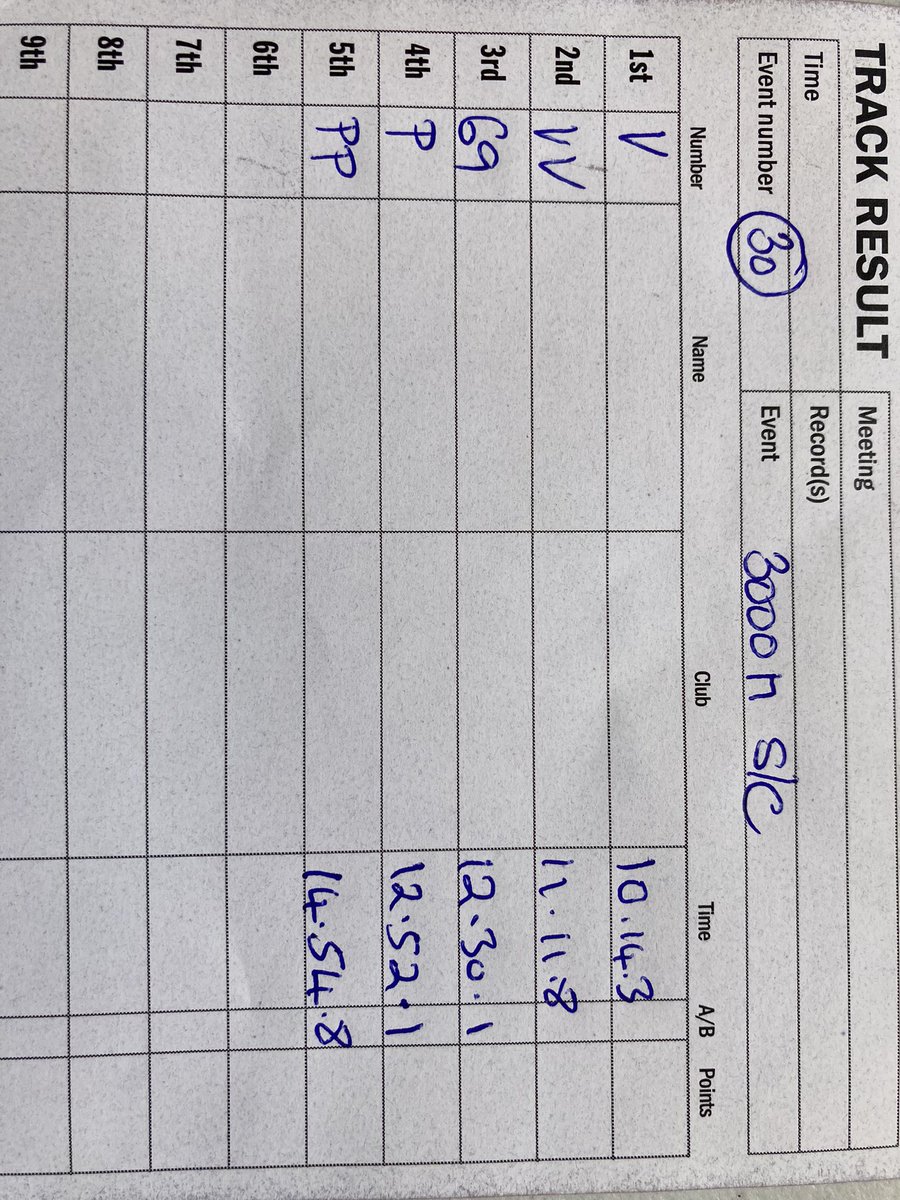 TRACK RESULT Meeting
Time Record(s)
Event number 30 Event 3000m S/C
Number Name Club Time A/B Points
1st V 10.14.3
2nd VV 11.11.8
3rd 69 12.30.1
4th P 12.52.1
5th PP 14.54.8
6th
7th
8th
9th